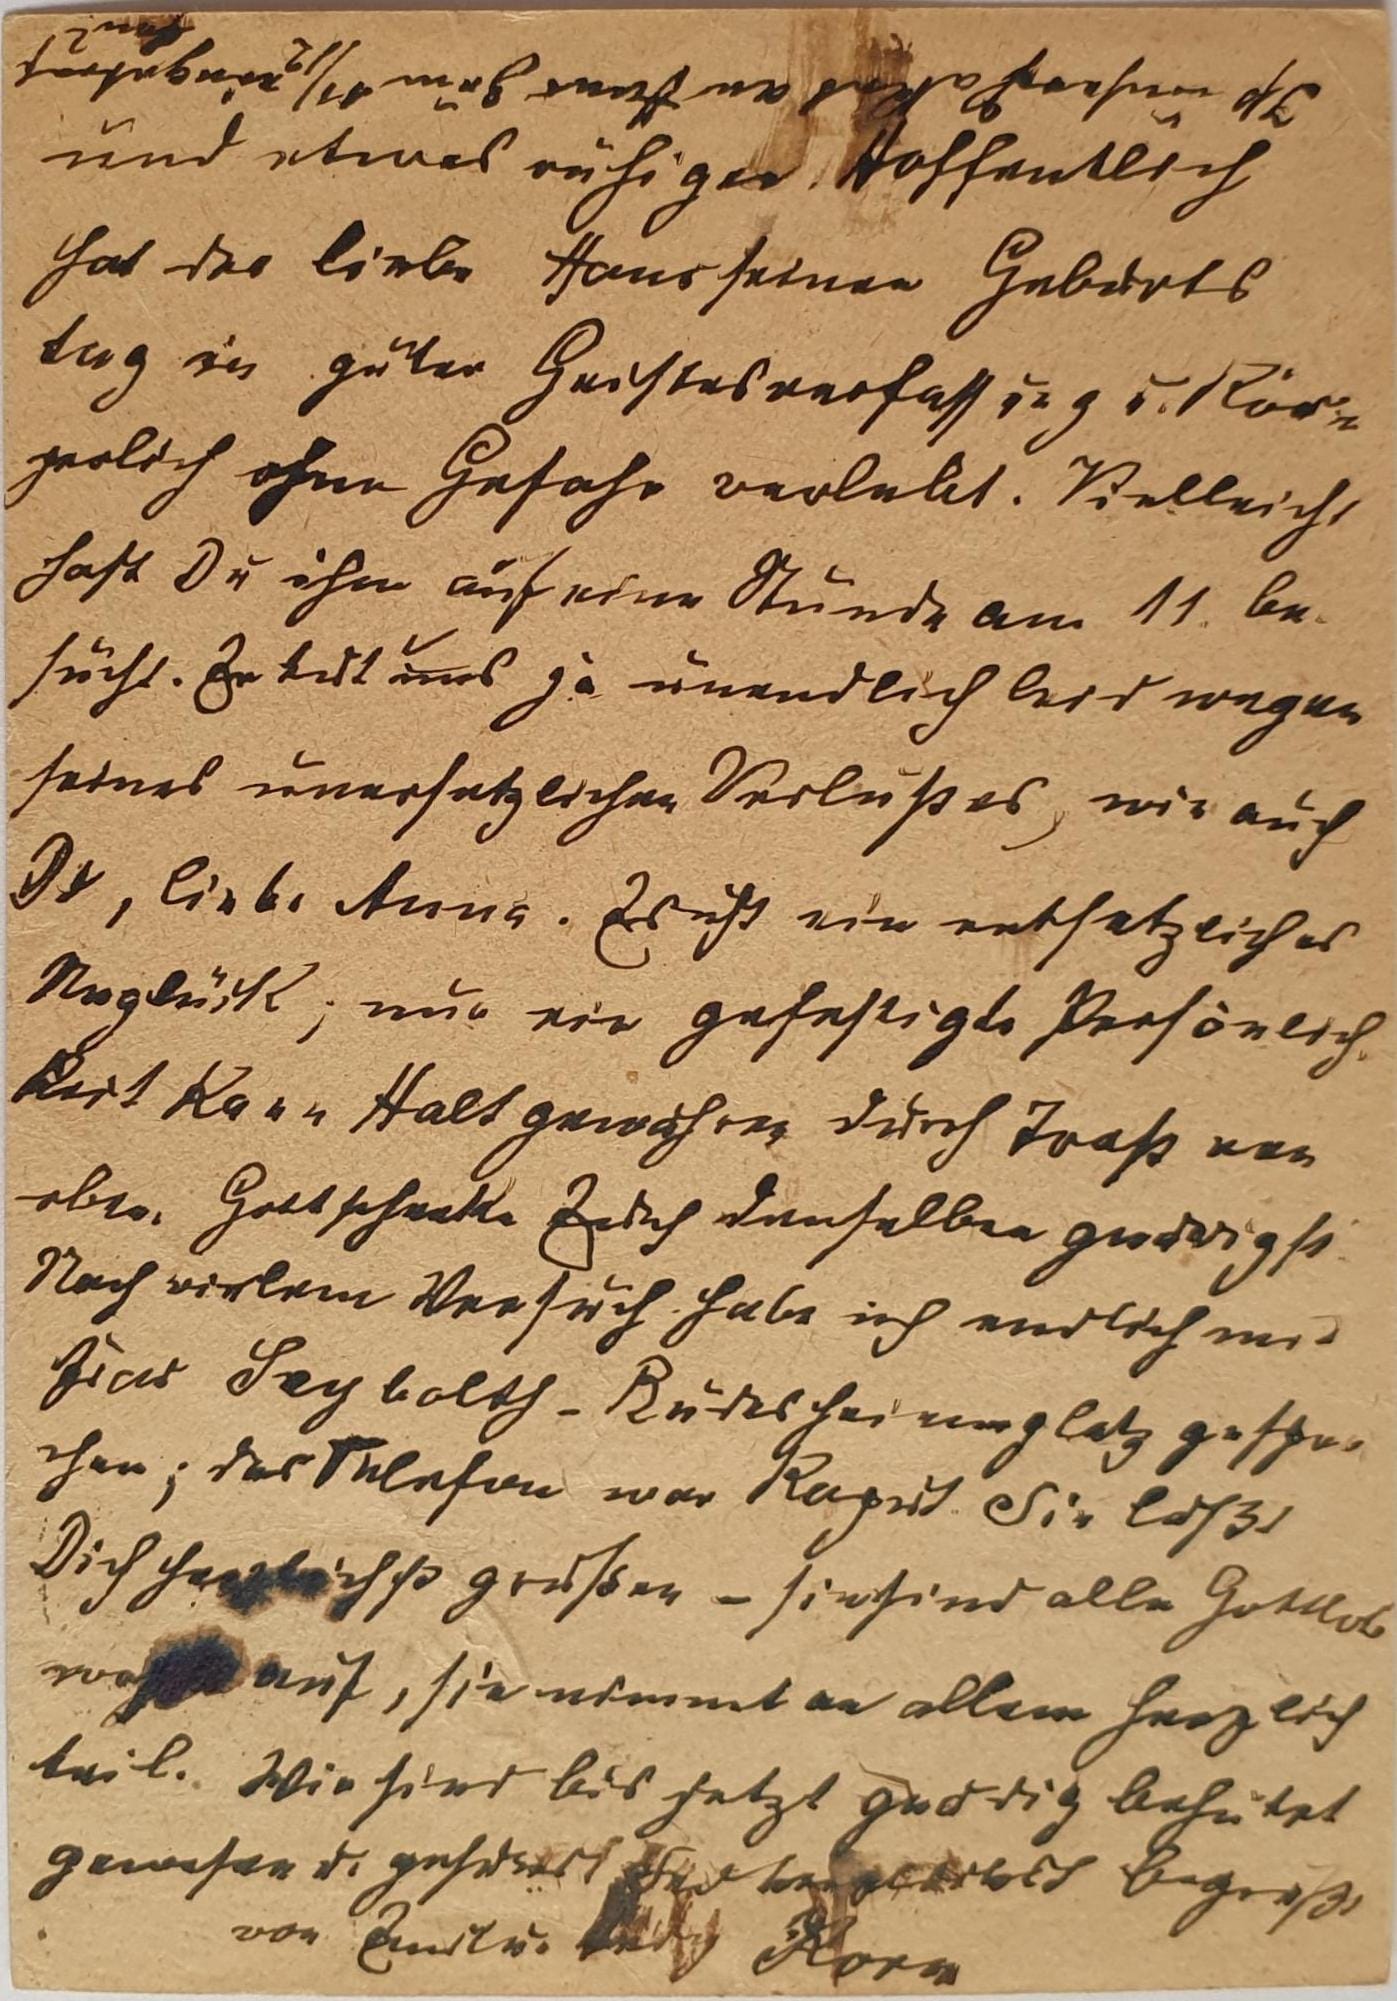 und etwas ruhiger. Hoffentlich
hat der liebe Hans seinen Geburts
tag in guter Geistesverfassung u. Kör-
perlich ohne Gefahr verlebt. Vielleicht
hast Du ihm auf eine Stunde am 11. be-
sucht. Er tut uns ja unendlich leid wegen
seines unersetzlichen Verlußtes, wie auch
Du, liebe Anna. Es ist ein entsetzliches
Unglück; nur ein gefestigte Persönlich-
keit Kann Halt gewähren durch Trost von
oben. Gott schenke Euch denselben gnädigst
Nach vielem Versuch habe ich endlich mit
Frau Seybolth - Rüdesheimerplatz gespro-
chen; das Telefon war Kaput. Sie läßt
Dich herzlichst grüßen - sie sind alle Gottlob
auf, sie nimmt an allem herzlich
teil. Wir sind bis jetzt gnädig behütet
gewesen u. begrüßt
von Emil u. Korn
Ich an Hans zum 11/12